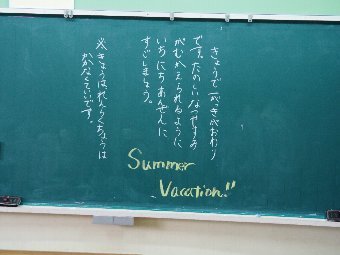 きょうで一がきがおわり
です。たのしいなつやすみ
がむかえられるように
いちにちあんぜんに
すごしましょう。
※きょうはれんらくちょうは
かかなくていいです。
Summer
Vacation!!